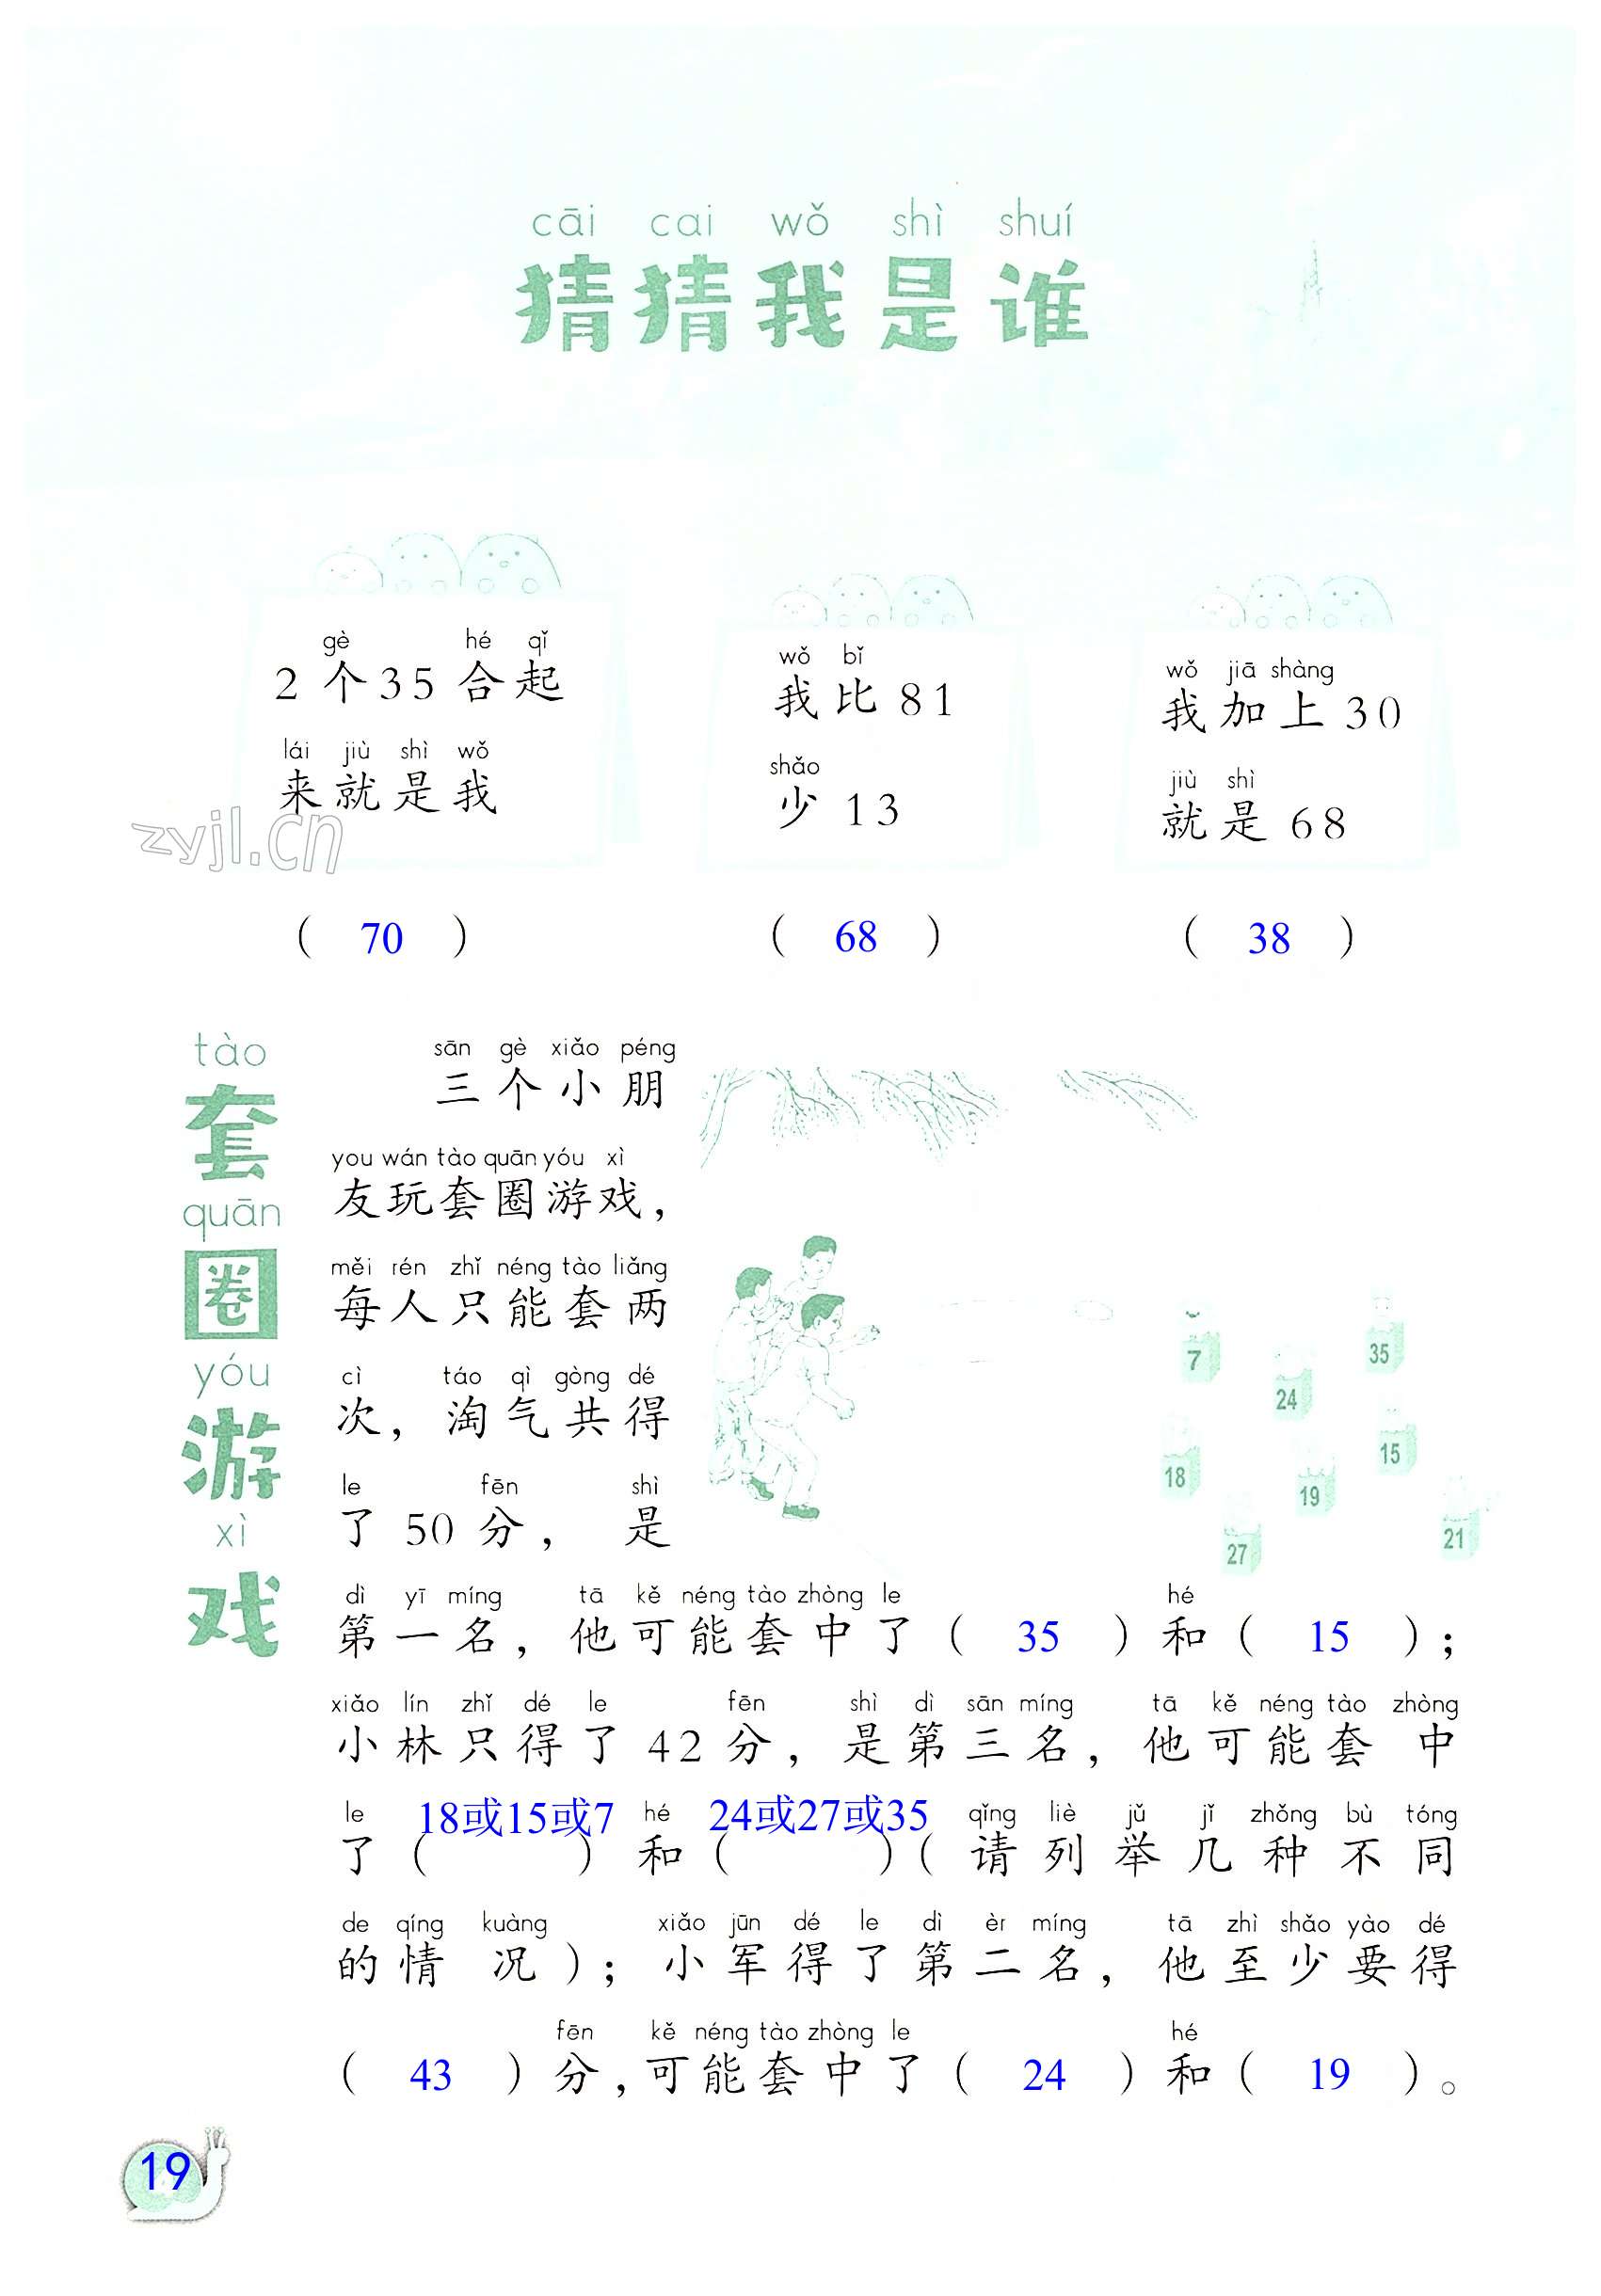 cāi cai wǒ shì shuí
猜猜我是谁
gè hé qǐ
2个35合起
lái jiù shì wǒ
来就是我
zyjl.cn
( 70 )
wǒ bǐ
我比81
shǎo
少13
( 68 )
wǒ jiā shàng
我加上30
jiù shì
就是68
( 38 )
tào
套
quān
圈
yóu
游
xì
戏
sān gè xiǎo péng
三个小朋
you wán tào quān yóu xì
友玩套圈游戏，
měi rén zhǐ néng tào liǎng
每人只能套两
cì táo qì gòng dé
次，淘气共得
le fēn shì
了50分，是
7
35
24
15
18
19
27
21
dì yī míng tā kě néng tào zhòng le hé
第一名，他可能套中了( 35 )和( 15 )；
xiǎo lín zhǐ dé le fēn shì dì sān míng tā kě néng tào zhòng
小林只得了42分，是第三名，他可能套中
le hé qǐng liè jǔ jǐ zhǒng bù tóng
了(18或15或7)和(24或27或35)(请列举几种不同
de qíng kuàng xiǎo jūn dé le dì èr míng tā zhì shǎo yào dé
的情况)；小军得了第二名，他至少要得
fēn kě néng tào zhòng le hé
( 43 )分，可能套中了( 24 )和( 19 )。
19